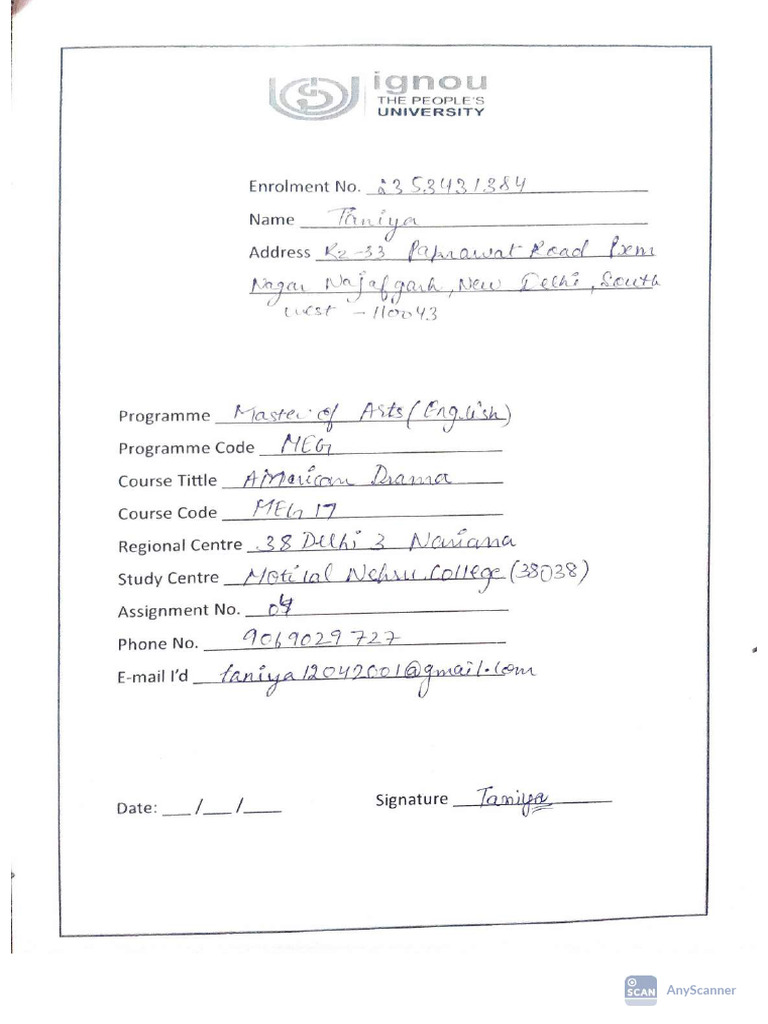 ignou
THE PEOPLE'S
UNIVERSITY
Enrolment No. 2353431384
Name Taniya
Address Rz-33 Paprawat Road Prem
Nagar Najafgarh, New Delhi, South
West - 110043
Programme Master of Arts (English)
Programme Code MEG
Course Tittle American Drama
Course Code MEG 17
Regional Centre 38 Delhi 3 Naraina
Study Centre Motilal Nehru College (38038)
Assignment No.
Phone No. 9069029727
E-mail I'd taniya12042001@gmail.com
Date: ___/___/____
Signature Taniya
SCAN AnyScanner